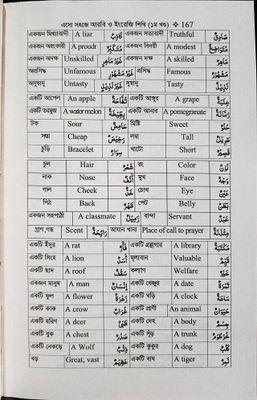 এসো সহজে আরবি ও ইংরেজি শিখি (১ম খণ্ড) ❖ 167
একজন মিথ্যাবাদী A liar كَاذِبٌ একজন সত্যবাদী Truthful صَادِقٌ
একজন অহংকারী A proudr একজন বিনয়ী A modest
একজন অদক্ষ Unskilled একজন দক্ষ A skilled
অপ্রসিদ্ধ Unfamous প্রসিদ্ধ Famous مَشْهُوْرٌ
অসুস্বাদু Untasty সুস্বাদু Tasty لَذِيْذٌ
একটি আপেল An apple تُفَّاحٌ একটি আঙুর A grape عِنَبٌ
একটি তরমুজ A water melon একটি আনার A pomegranate رُمَّانٌ
টক Sour حَامِضٌ মিষ্টি Sweet حُلْوٌ
সস্তা Cheap رَخِيْصٌ লম্বা Tall طَوِيْلٌ
চুড়ি Bracelet سِوَارٌ খাটো Short قَصِيْرٌ
চুল Hair شَعْرٌ রং Color لَوْنٌ
নাক Nose أَنْفٌ মুখ Face وَجْهٌ
গাল Cheek خَدٌّ চোখ Eye عَيْنٌ
পিঠ Back ظَهْرٌ পেট Belly بَطْنٌ
একজন সহপাঠী A classmate زَمِيْلٌ বান্দা Servant عَبْدٌ
ঘ্রাণ,গন্ধ Scent رَائِحَةٌ আযান খানা Place of call to prayer
একটি ইঁদুর A rat فَأْرٌ একটি গ্রন্থাগার A library مَكْتَبَةٌ
একটি সিংহ A lion أَسَدٌ মূল্যবান Valuable ثَمِيْنٌ
একটি ছাদ A roof سَقْفٌ কল্যাণ Welfare خَيْرٌ
একজন মানুষ A man إِنْسَانٌ একটি খেজুর A date تَمْرٌ
একটি ফুল A flower زَهْرَةٌ একটি ঘড়ি A clock سَاعَةٌ
একটি কাক A crow غُرَابٌ একটি প্রাণী An animal حَيَوَانٌ
একটি হরিণ A deer একটি দেহ A body جِسْمٌ
একটি বুক A chest صَدْرٌ একটি শুঁড় A trunk خُرْطُوْمٌ
একটি নেকড়ে A Wolf ذِئْبٌ একটি কুকুর A dog كَلْبٌ
বড় Great, vast একটি বাঘ A tiger نَمِرٌ